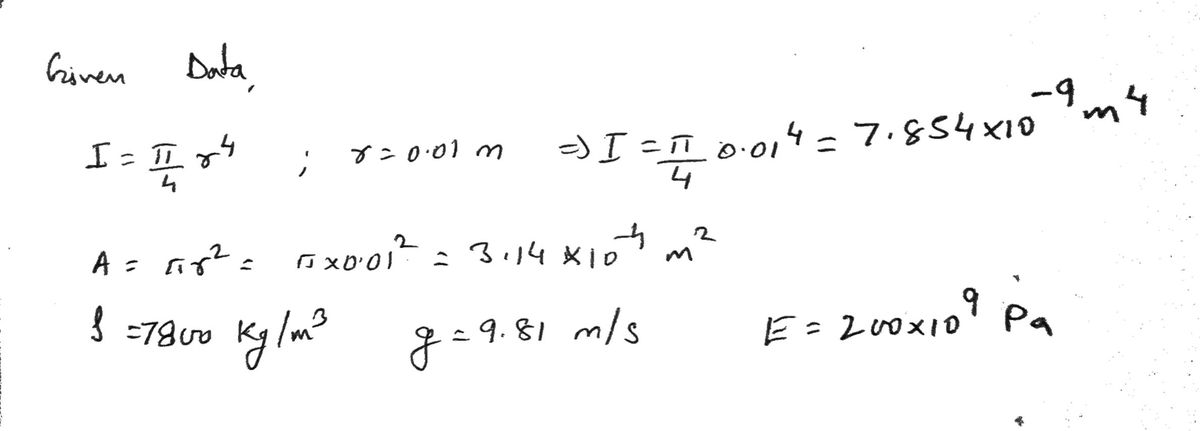 Given Data,
I = π/4 r⁴ ; r = 0.01 m ⇒ I = π/4 0.01⁴ = 7.854 × 10⁻⁹ m⁴
A = πr² = π × 0.01² = 3.14 × 10⁻⁴ m²
ρ = 7800 kg/m³ g = 9.81 m/s E = 200 × 10⁹ Pa